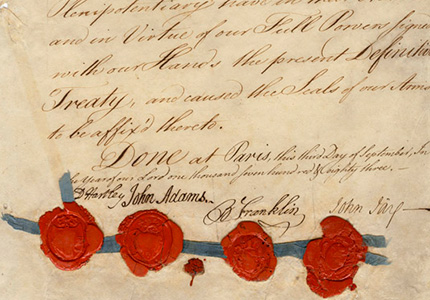 Plenipotentiary have in
and in Virtue of our Full Powers signed
with our Hands the present Definitive
Treaty, and caused the Seals of our Arms
to be affix'd thereto.
Done at Paris, this third Day of September, In
the Year of our Lord one thousand seven hundred & eighty three. —
D Hartley John Adams. B Franklin John Jay —